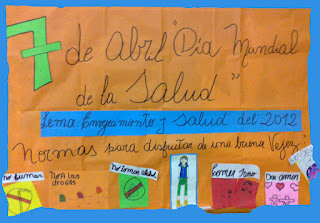 7 de Abril "Día Mundial
de la Salud"
Lema: Envejecimiento y Salud del 2012
Normas para disfrutar de una buena Vejez:
No fumar
No A las
drogas
No tomar Alcohol
Comer Sano